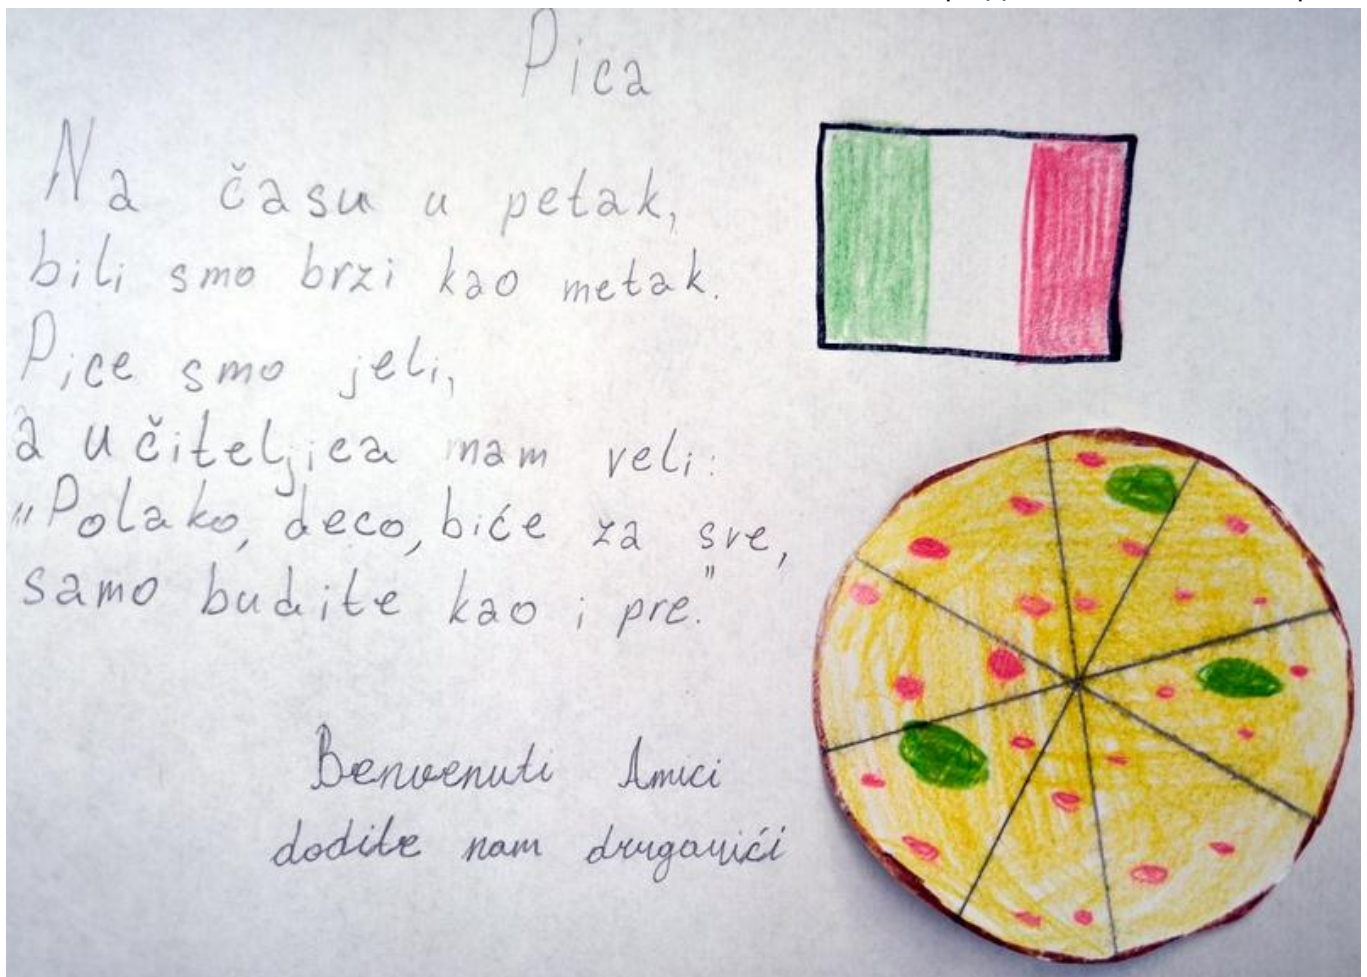 Pica
Na času u petak,
bili smo brzi kao metak.
Pice smo jeli,
a učiteljica nam veli:
"Polako, deco, biće za sve,
samo budite kao i pre."
Benvenuti Amici
dođite nam drugarići